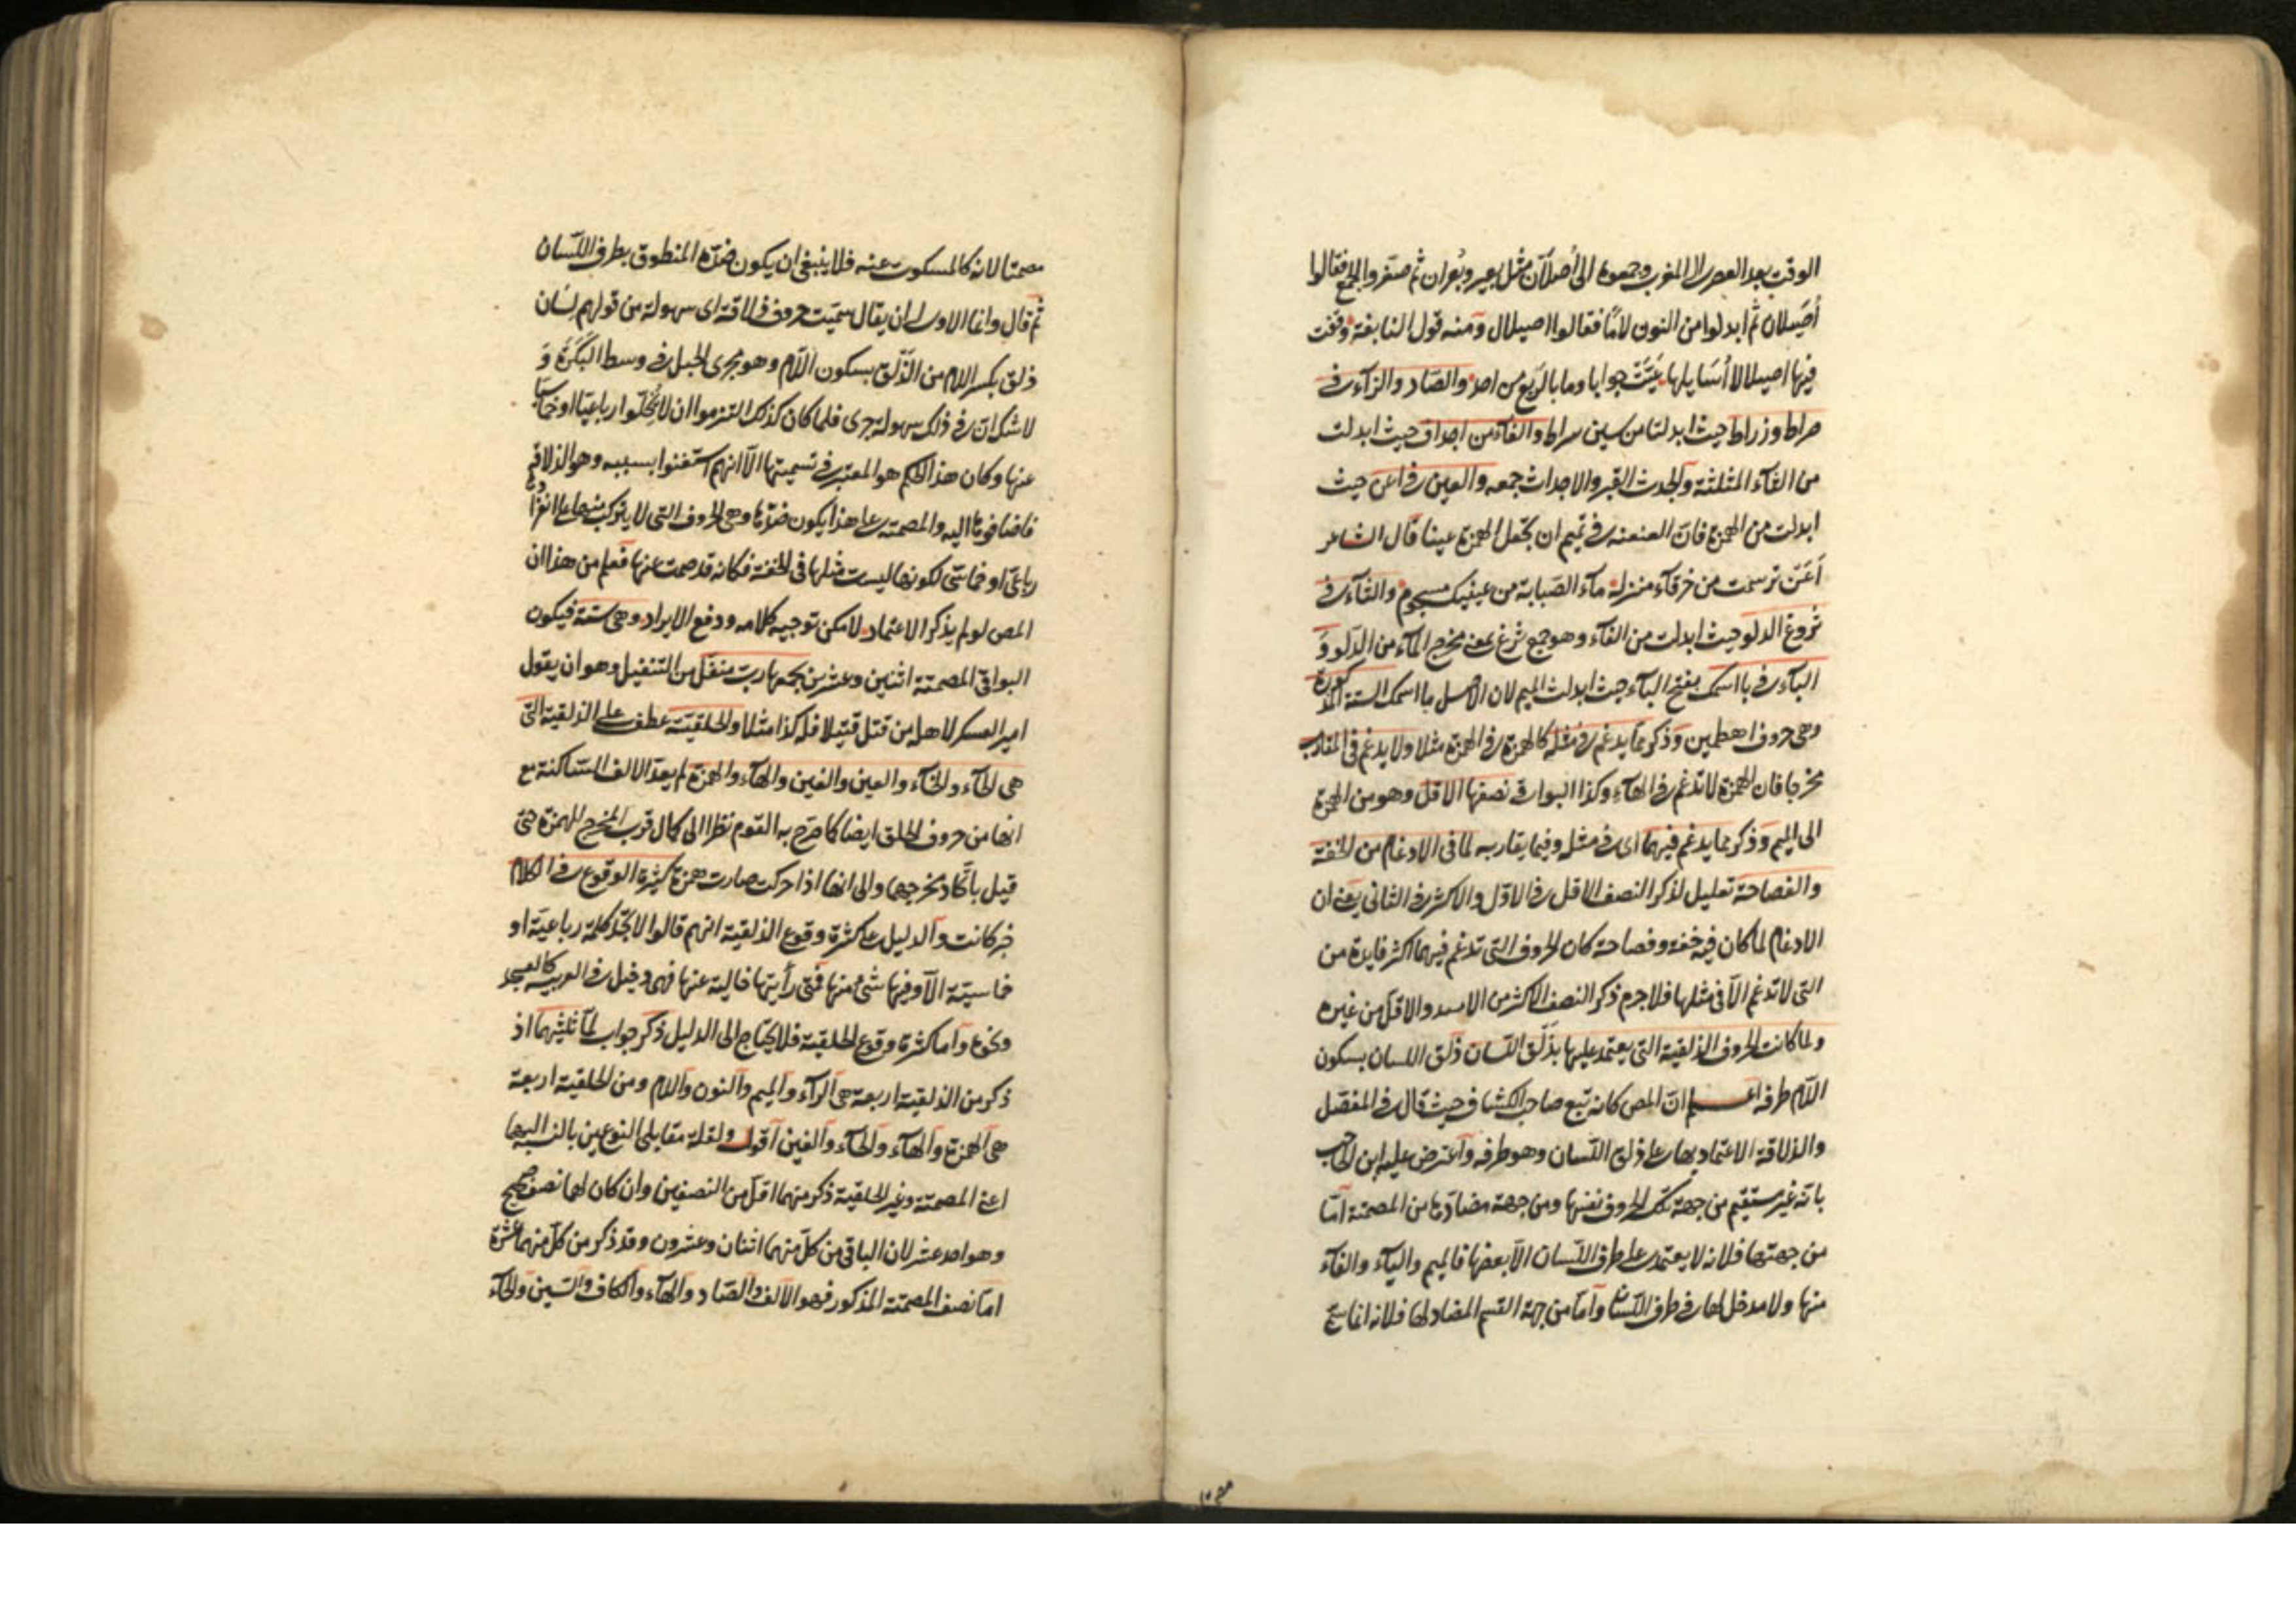 الوقت بعد العصر الى المغرب وجمعوه الى أُصلان مثل بعير وبُعران ثم صغروا الجمع فقالوا
أُصَيلان ثم ابدلوا من النون لامًا فقالوا اصيلال ومنه قول النابغة وقفت
فيها اصيلالا أُسَايلها عَيَّتْ جوابا وما بالرَبع من احد والصّاد والزآء في
صراط وزراط حيث ابدلتا من سين سراط والفآء من اجداف حيث ابدلت
من الثآء المثلثة والجدث القبر والاجداث جمعه والعين في اعن حيث
ابدلت من الهمزة فان العنعنه في تميم ان تجعل الهمزة عينا قال الشاعر
أَعَن ترسمت من خرقآء منزلة مآء الصَبابة من عينيك مسجوم والثآء في
ثروغ الدلو حيث ابدلت من الفآء وهو جمع ثرغ بمعنى مخرج المآء من الدَلو وَ
البآء في با اسمك بفتح البآء حيث ابدلت الميم لان الاصل ما اسمك الستة المذكورة
وهى حروف اهطمين وذكر ممّا يدغم في مثله كالهمزة في الهمزة مثلا ولا يدغم فى المقارب
مخرجا فان الهمزة لا تدغم في الهآء وكذا البواقى نصفها الاقل وهو من الهمزة
الى الميم وذكر مما يدغم فيهما اى في مثله وفيما يقاربه لما فى الادغام من الخفة
والفصاحة تعليل لذكر النصف الاقل في الاوّل والاكثر فى الثانى يعنى ان
الادغام لما كان فيه خفة وفصاحة كان الحروف التى تدغم فيهما اكثر فايدة من
التى لا تدغم الّا فى مثلها فلا جرم ذكر النصف الاكثر من والاقل من غيره
ولما كانت الحروف الذلقية التى يعتمد عليها بذَلَق اللسان ذلق اللسان بسكون
اللّام طرفه اعلم انّ المص كانه تبع صاحب الكشاف حيث قال في المفصل
والذلاقة الاعتماد بها على ذلق اللّسان وهو طرفه وأعترض عليه ابن الحاجب
بانه غير مستقيم من جهة تلك الحروف نفسها ومن جهة مضادتها من المصمتة امّا
من جهتها فلانه لا يعتمد على طرف اللّسان الّا بعضها فالميم والبآء والفآء
منها ولا مدخل لها في طرف اللّسان وأمّا من جهة القسم المضاد لها فلانه انما سمى
مصمتا لانه كالمسكوت عنه فلا ينبغى ان يكون ضدّه المنطوق بطرف اللّسان
ثم قال وانما الاولى ان يقال سميّت حروف ذلاقة اى سهولة من قولهم لسان
ذلق بكسر اللام من الذّلَق بسكون اللّام وهو مجرى الحبل في وسط البَكَرَة وَ
لا شك ان في ذلك سهولة جرى فلما كان كذلك التزموا ان لا يُخلّوا رباعيّا او خماسيّا
عنها وكان هذا الحكم هو المعتبر في تسميتها الّا انهم استغنوا بسببه وهو الذلاقة
فاضافوها اليه والمصمتة على هذا يكون ضدّها وهى الحروف التى لا يتركب منها على انفرادها
رباعّى او خماسّى لكونها ليست مثلها فى الخفة فكانه قد صمت عنها فعلم من هذا ان
المص لو لم يذكر الاعتماد لامكن توجيه كلامه ودفع الايراد وهى ستة فيكون
البواقى المصمتة اثنين وعشرين يجمعها ربّ منفل من التنفيل وهو ان يقول
امير العسكر لاهله من قتل قتيلا فله كذا مثلا والحلقيّة عطف على الذلقية التى
هى الحآء والخآء والعين والغين والهآء والهمزة لم يعدّ الالف الساكنة مع
انها من حروف الحلق ايضا كما صرّح به القوم نظرا الى كمال قرب المخرج للهمزة حتى
قيل باتّحاد مخرجهما والى انها اذا حركت صارت همزة كثيرة الوقوع فى الكلام
خبر كانت والدليل على كثرة وقوع الذلقية انهم قالوا لا تجد كلمة رباعيّة او
خماسيّة الّا وفيها شئ منها فمتى رأيتها خالية عنها فهى دخيل فى العربية كالعسجد
ونحوه وأما كثرة وقوع الحلقية فلا يحتاج الى الدليل ذكر جواب لمّا ثلثيهما اذ
ذكر من الذلقية اربعة هى الرآء والميم والنون واللام ومن الحلقية اربعة
هى الهمزة والهآء والحآء والعين اقول ولقلة مقابلى النوعين بالنسبة اليها
اعنى المصمتة وغير الحلقية ذكر منهما اقل من النصفين وان كان لهما نصف صحيح
وهو احد عشر لان الباقى من كلّ منهما اثنان وعشرون وقد ذكر من كلّ منهما عشرة
امّا نصف المصمتة المذكور فهو الالف والصّاد والهآء والكاف والسّين والحآء